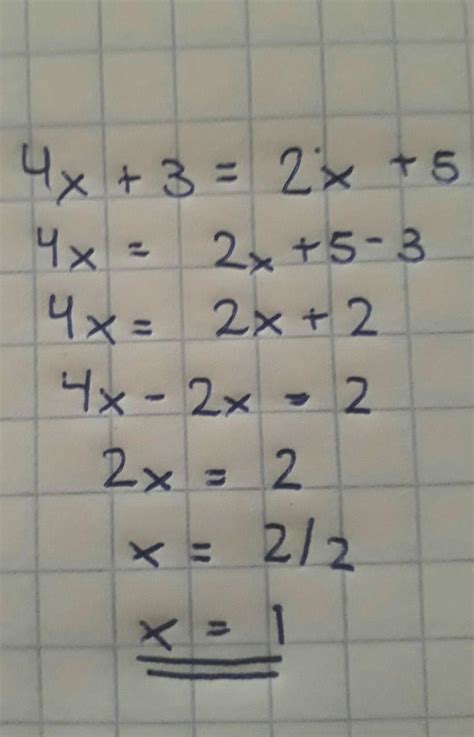 4x + 3 = 2x + 5
4x = 2x + 5 - 3
4x = 2x + 2
4x - 2x = 2
2x = 2
x = 2/2
x = 1